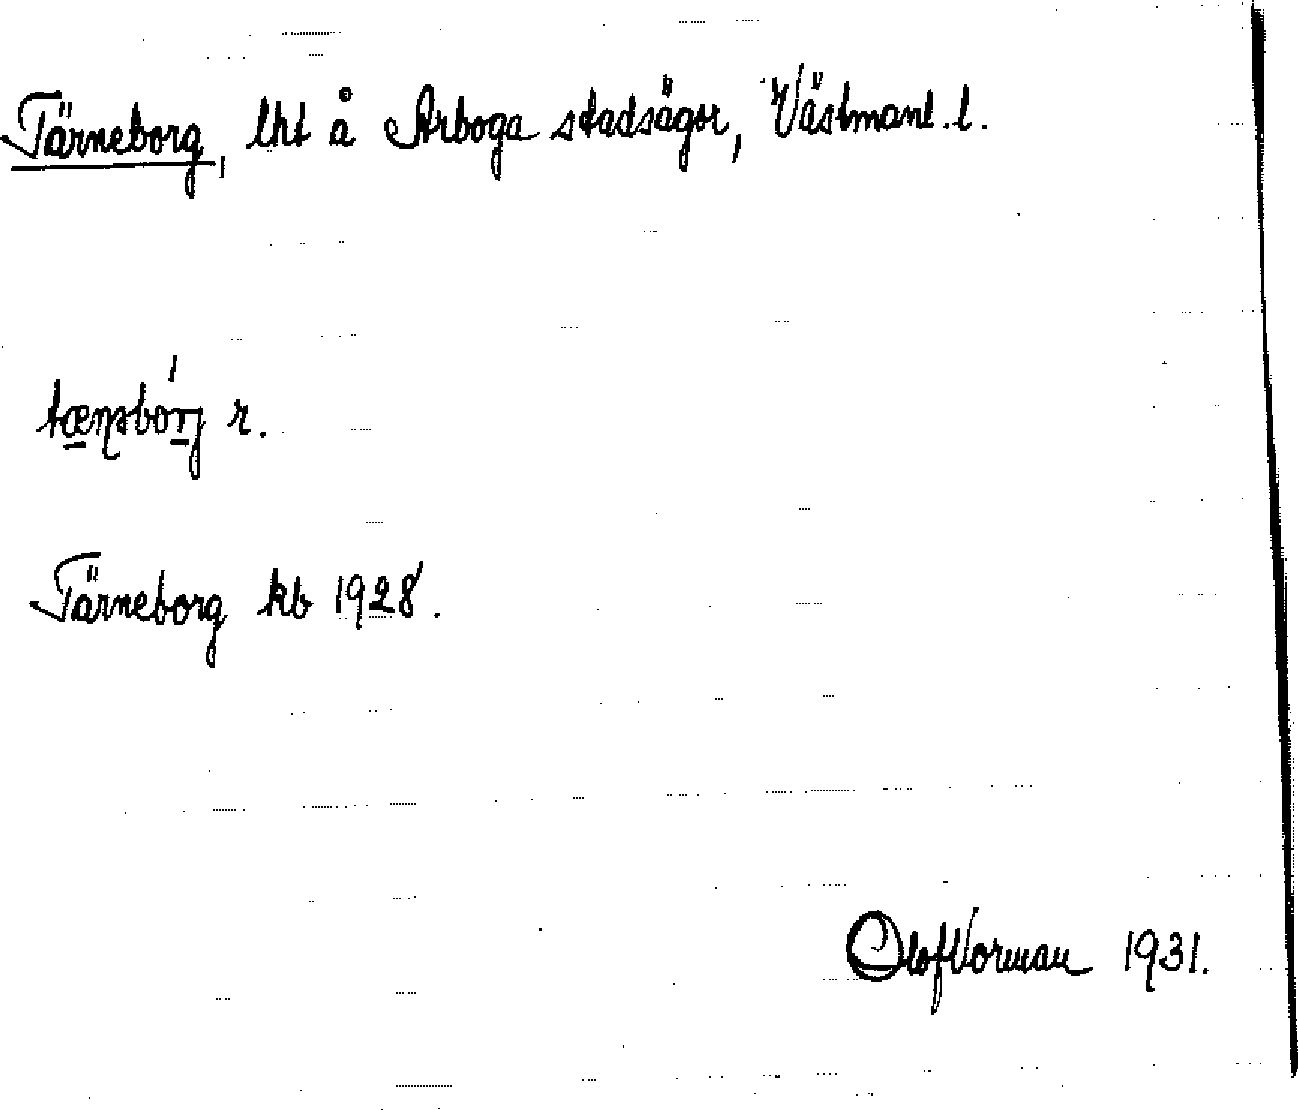 Tärneborg, lht å Arboga stadsägor, Västmanl. l.
r.
Tärneborg kb 1928.
Olof Vorman 1931.